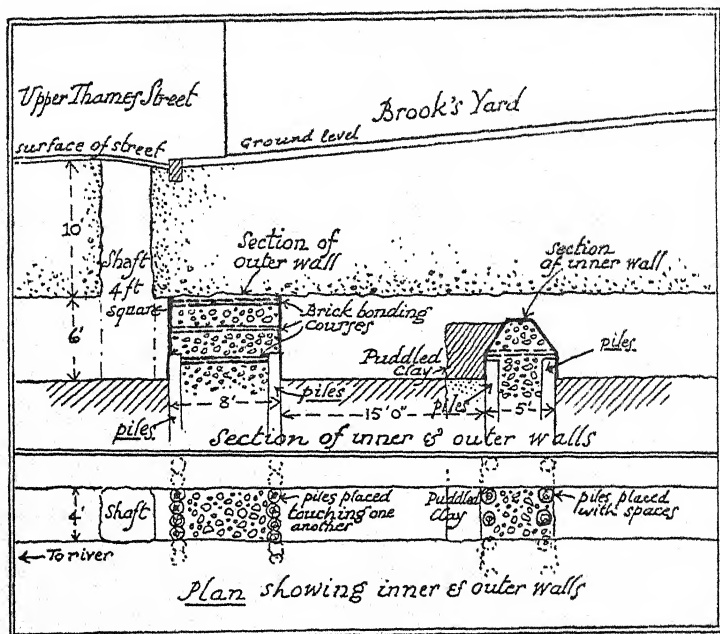 Upper Thames Street
Brook's Yard
surface of street
Ground level
10'
Shaft
4 ft
square
Section of
outer wall
section
of inner wall
6'
Brick bonding
courses
Puddled
clay
piles
piles
piles
piles
8'
15'0"
5'
Section of inner & outer walls
4'
Shaft
piles placed
touching one
another
Puddled
clay
piles placed
with spaces
← To river
Plan showing inner & outer walls